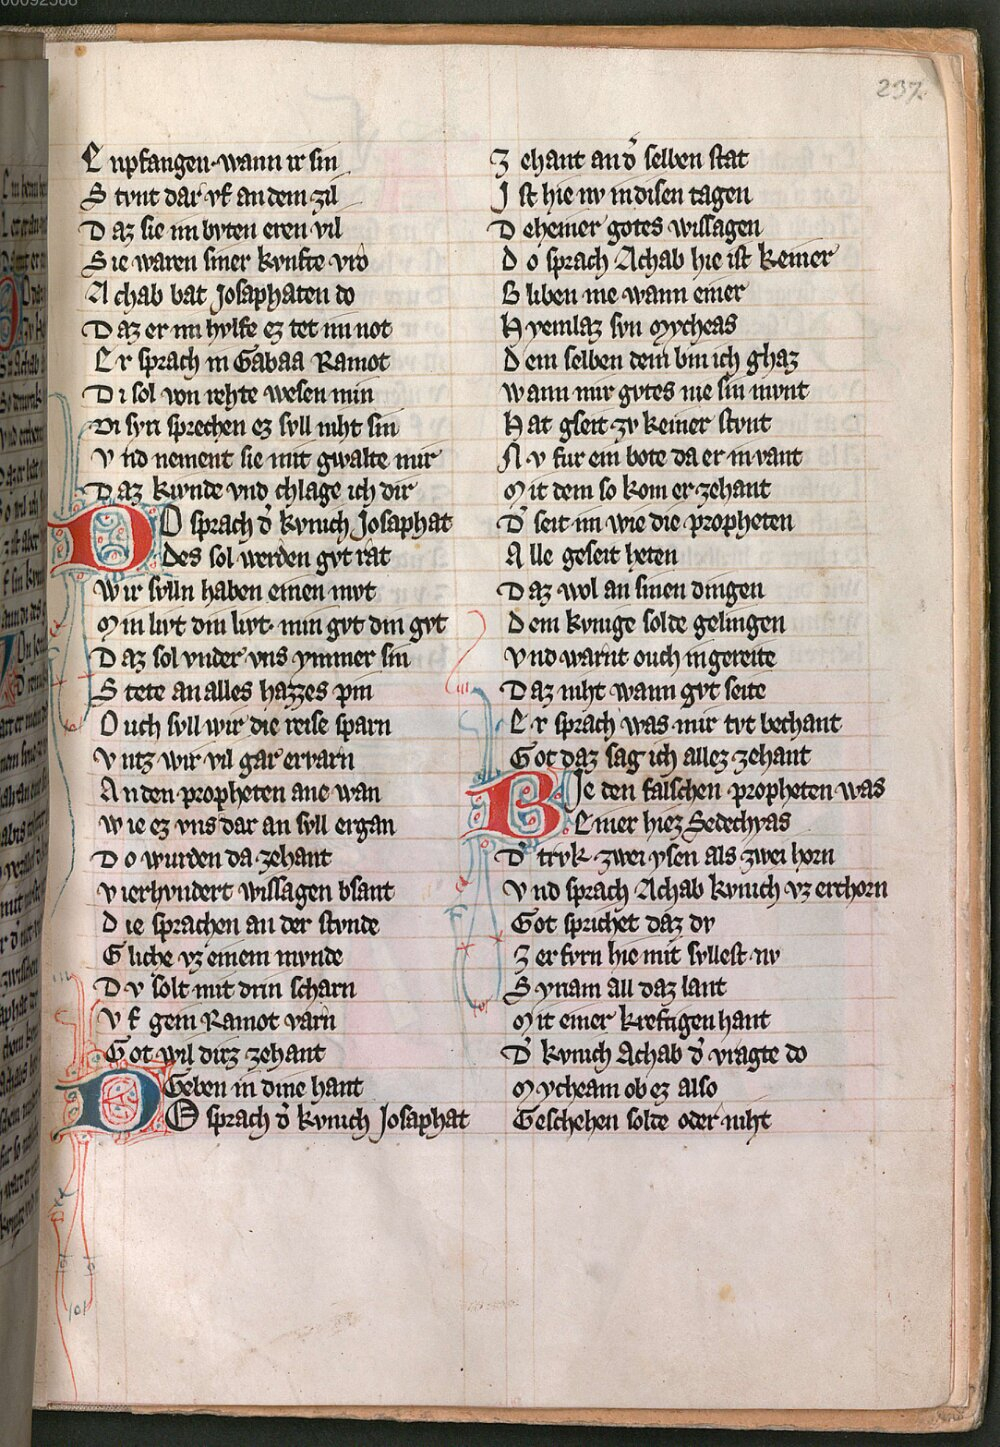 00092588
237.
E npfangen·wann ir sin
S tvnt dar vf an dem zil
D az sie im bvten eren vil
S ie waren siner kvnfte vro
A chab bat Josaphaten do
D az er im hvlfe ez tet im not
E r sprach in Gabaa Ramot
D i sol von rehte wesen min
Di syri sprechen ez svll niht sin
V nd nement sie mit gwalte mir
D az kvnde vnd chlage ich dir
DO sprach d̾ kvnich Josaphat
Des sol werden gvt rat
W ir svlln haben einen mvt
M in livt din livt· min gvt din gvt
D az sol vnder vns ymmer sin
S tete an alles hazzes pin
O uch svll wir die reise sparn
V ntz wir vil gar ervarn
A n den propheten ane wan
W ie ez vns dar an svll ergan
D o wurden da zehant
V ierhvndert wissagen bsant
D ie sprachen an der stvnde
G liche vz einem mvnde
D v solt mit drin scharn
V f gein Ramot varn
Got wil dirz zehant
Geben in dine hant
DO sprach d̾ kvnich Josaphat
Z ehant an d̾ selben stat
J st hie nv in disen tagen
D eheiner gotes wissagen
D o sprach Achab hie ist keiner
B liben nie wann einer
H yemlaz svn Mycheas
D em selben dem bin ich ghaz
Wann mir gvtes nie sin mvnt
H at gseit zv keiner stvnt
N v fur ein bote da er in vant
M it dem so kom er zehant
D̾ seit im wie die propheten
A lle geseit heten
D az wol an sinen dingen
D em kvnige solde gelingen
V nd warnt ouch in gereite
D az niht wann gvt seite
E r sprach was mir tvt bechant
Got daz sag ich allez zehant
BJe den falschen propheten was
Einer hiez Sedechyas
D̾ trvk zwei ysen als zwei horn
V nd sprach Achab kvnich vz erchorn
Got sprichet daz dv
Z erfvrn hie mit svllest nv
S ynam all daz lant
M it einer kreftigen hant
D̾ kvnich Achab d̾ vragte do
M ycheam ob ez also
Geschehen solde oder niht